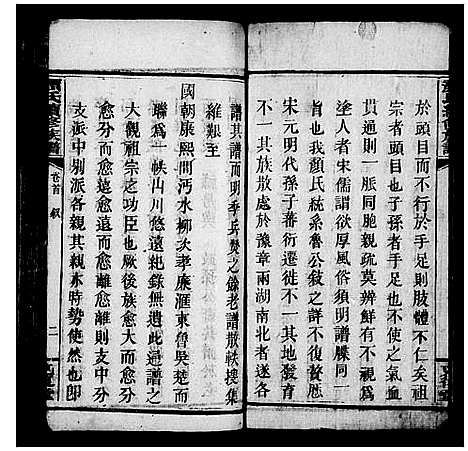 於頭目而不行於手足則肢體不仁矣祖
宗者頭目也子孫者手足也不使之氣血
貫通則一脈同胞親疏莫辨鮮有不視為
塗人者宋儒謂欲厚風俗須明譜牒同一
我顏氏統系魯公敘之詳不復贅惟
宋元明代孫子蕃衍遷徙不一其居
不一其族散處於豫章兩湖南北者遂各
譜其譜而明季兵燹之餘老譜散軼搜集
維艱至
國朝康熙間沔水柳次孝廉滙東魯吳楚而
聯為一帙山川悠遠紀錄無遺此譜之
大觀祖宗之功臣也厥後族愈大而
愈分而愈遠愈遠而愈離則支中分
支派中別派各親其親亦時勢使然也即
卷首 敘 二